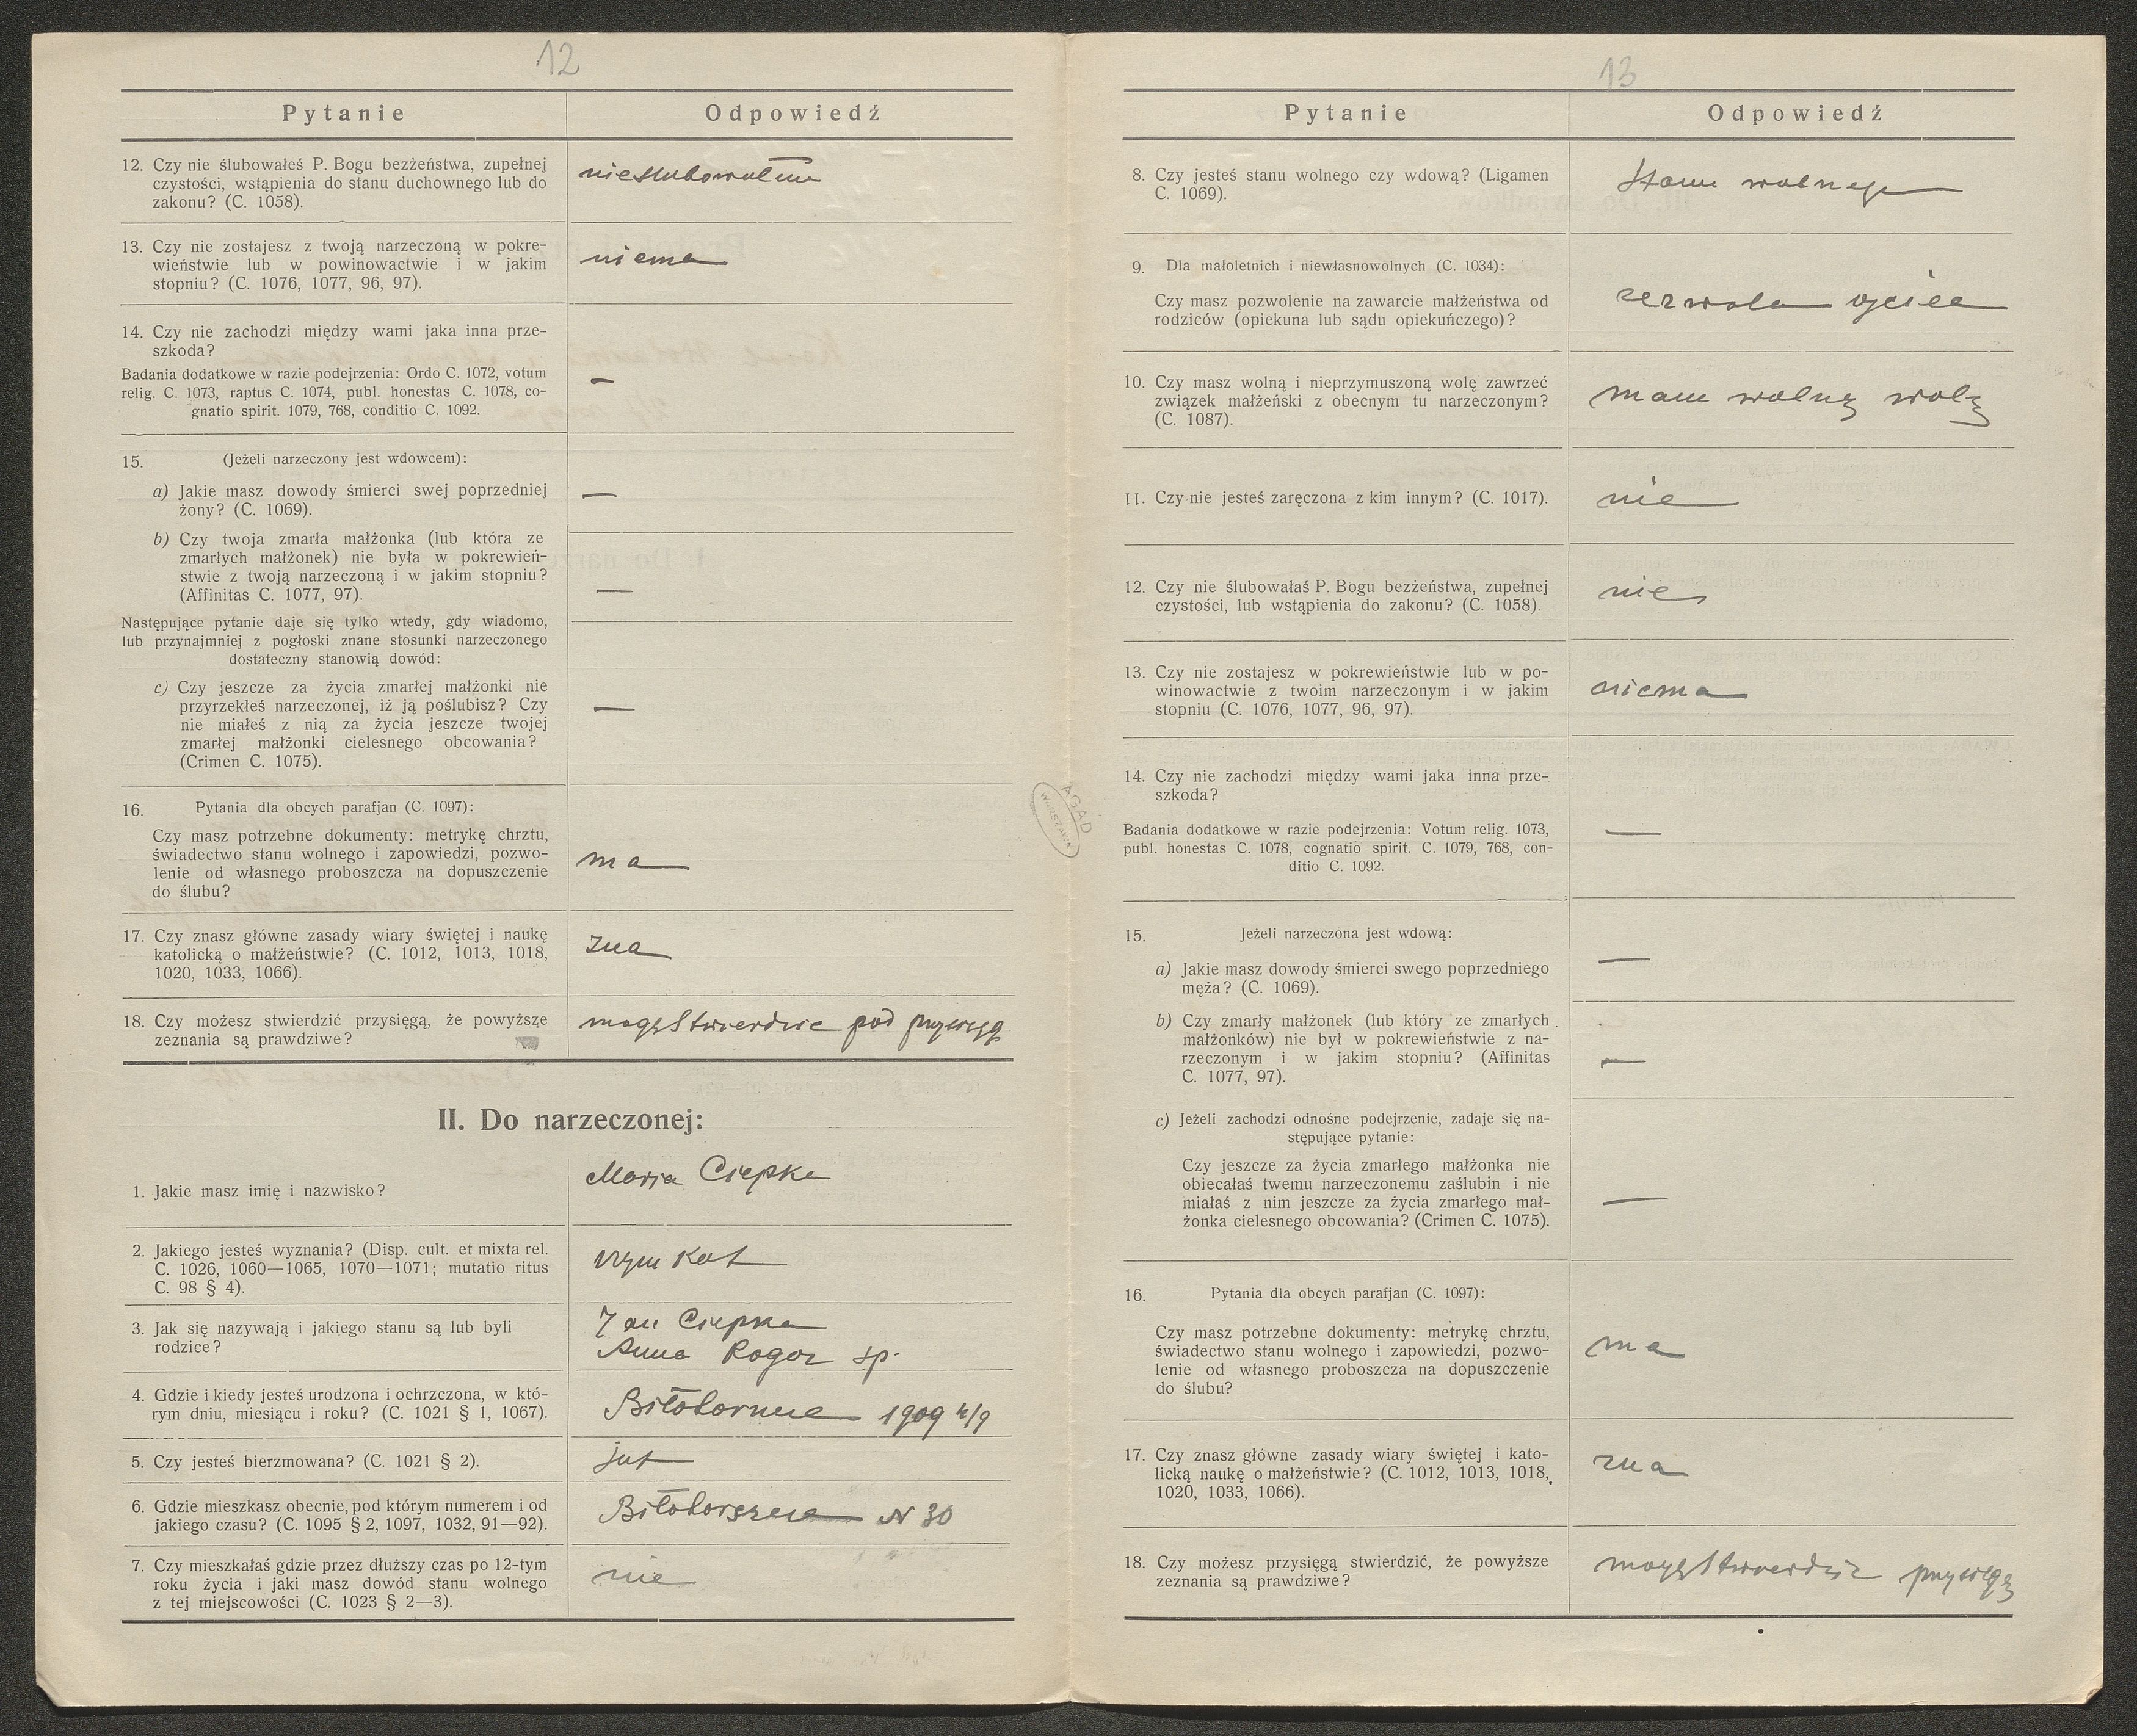 12
Pytanie
Odpowiedź
12. Czy nie ślubowałeś P. Bogu bezżeństwa, zupełnej
czystości, wstąpienia do stanu duchownego lub do
zakonu? (C. 1058).
nieslubowałem
13. Czy nie zostajesz z twoją narzeczoną w pokre-
wieństwie lub w powinowactwie i w jakim
stopniu? (C. 1076, 1077, 96, 97).
niema
14. Czy nie zachodzi między wami jaka inna prze-
szkoda?
Badania dodatkowe w razie podejrzenia: Ordo C. 1072, votum
relig. C. 1073, raptus C. 1074, publ. honestas C. 1078, co-
gnatio spirit. 1079, 768, conditio C. 1092.
—
15. (Jeżeli narzeczony jest wdowcem):
a) Jakie masz dowody śmierci swej poprzedniej
żony? (C. 1069).
—
b) Czy twoja zmarła małżonka (lub która ze
zmarłych małżonek) nie była w pokrewień-
stwie z twoją narzeczoną i w jakim stopniu?
(Affinitas C. 1077, 97).
—
Następujące pytanie daje się tylko wtedy, gdy wiadomo,
lub przynajmniej z pogłoski znane stosunki narzeczonego
dostateczny stanowią dowód:
c) Czy jeszcze za życia zmarłej małżonki nie
przyrzekłeś narzeczonej, iż ją poślubisz? Czy
nie miałeś z nią za życia jeszcze twojej
zmarłej małżonki cielesnego obcowania?
(Crimen C. 1075).
—
16. Pytania dla obcych parafjan (C. 1097):
Czy masz potrzebne dokumenty: metrykę chrztu,
świadectwo stanu wolnego i zapowiedzi, pozwo-
lenie od własnego proboszcza na dopuszczenie
do ślubu?
ma
17. Czy znasz główne zasady wiary świętej i naukę
katolicką o małżeństwie? (C. 1012, 1013, 1018,
1020, 1033, 1066).
zna
18. Czy możesz stwierdzić przysięgą, że powyższe
zeznania są prawdziwe?
mogę stwierdzic pod przysięgą
II. Do narzeczonej:
1. Jakie masz imię i nazwisko?
Marja Ciepka
2. Jakiego jesteś wyznania? (Disp. cult. et mixta rel.
C. 1026, 1060—1065, 1070—1071; mutatio ritus
C. 98 § 4).
rzym kat
3. Jak się nazywają i jakiego stanu są lub byli
rodzice?
Jan Ciepka
Anna Rogoz sp.
4. Gdzie i kiedy jesteś urodzona i ochrzczona, w któ-
rym dniu, miesiącu i roku? (C. 1021 § 1, 1067).
1909 /9
5. Czy jesteś bierzmowana? (C. 1021 § 2).
6. Gdzie mieszkasz obecnie, pod którym numerem i od
jakiego czasu? (C. 1095 § 2, 1097, 1032, 91—92).
N 30
7. Czy mieszkałaś gdzie przez dłuższy czas po 12-tym
roku życia i jaki masz dowód stanu wolnego
z tej miejscowości (C. 1023 § 2—3).
nie
AGAD
WARSZAWA
13
Pytanie
Odpowiedź
8. Czy jesteś stanu wolnego czy wdową? (Ligamen
C. 1069).
stanu wolnego
9. Dla małoletnich i niewłasnowolnych (C. 1034):
Czy masz pozwolenie na zawarcie małżeństwa od
rodziców (opiekuna lub sądu opiekuńczego)?
zezwala ojciec
10. Czy masz wolną i nieprzymuszoną wolę zawrzeć
związek małżeński z obecnym tu narzeczonym?
(C. 1087).
mam wolną wolę
11. Czy nie jesteś zaręczona z kim innym? (C. 1017).
nie
12. Czy nie ślubowałaś P. Bogu bezżeństwa, zupełnej
czystości, lub wstąpienia do zakonu? (C. 1058).
nie
13. Czy nie zostajesz w pokrewieństwie lub w po-
winowactwie z twoim narzeczonym i w jakim
stopniu (C. 1076, 1077, 96, 97).
niema
14. Czy nie zachodzi między wami jaka inna prze-
szkoda?
Badania dodatkowe w razie podejrzenia: Votum relig. 1073,
publ. honestas C. 1078, cognatio spirit. C. 1079, 768, con-
ditio C. 1092.
—
15. Jeżeli narzeczona jest wdową:
a) Jakie masz dowody śmierci swego poprzedniego
męża? (C. 1069).
—
b) Czy zmarły małżonek (lub który ze zmarłych
małżonków) nie był w pokrewieństwie z na-
rzeczonym i w jakim stopniu? (Affinitas
C. 1077, 97).
—
c) Jeżeli zachodzi odnośne podejrzenie, zadaje się na-
stępujące pytanie:
Czy jeszcze za życia zmarłego małżonka nie
obiecałaś twemu narzeczonemu zaślubin i nie
miałaś z nim jeszcze za życia zmarłego mał-
żonka cielesnego obcowania? (Crimen C. 1075).
—
16. Pytania dla obcych parafjan (C. 1097):
Czy masz potrzebne dokumenty: metrykę chrztu,
świadectwo stanu wolnego i zapowiedzi, pozwo-
lenie od własnego proboszcza na dopuszczenie
do ślubu?
ma
17. Czy znasz główne zasady wiary świętej i kato-
licką naukę o małżeństwie? (C. 1012, 1013, 1018,
1020, 1033, 1066).
zna
18. Czy możesz przysięgą stwierdzić, że powyższe
zeznania są prawdziwe?
mogę stwierdzic przysięgą